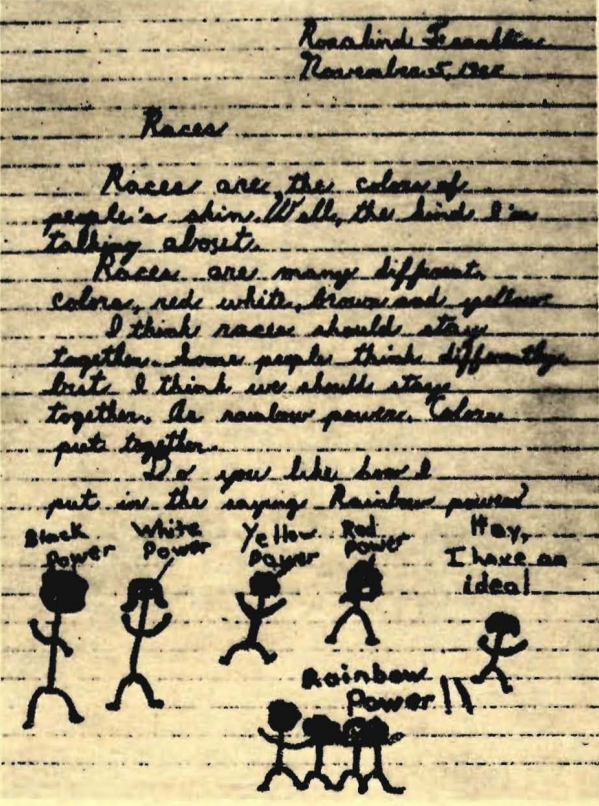 Rosalind Franklin
November 5, 19
Races
Races are the colors of
people's skin. Well, the kind I'm
talking about.
Races are many different
colors, red white, brown and yellow
I think races should stay
together. Some people think differently
but I think we should stay
together. As rainbow power. Colors
put together.
Do you like how I
put in the saying Rainbow power?
Black
Power
White
Power
Yellow
Power
Red
Power
Hey,
I have an
idea!
Rainbow
Power!!